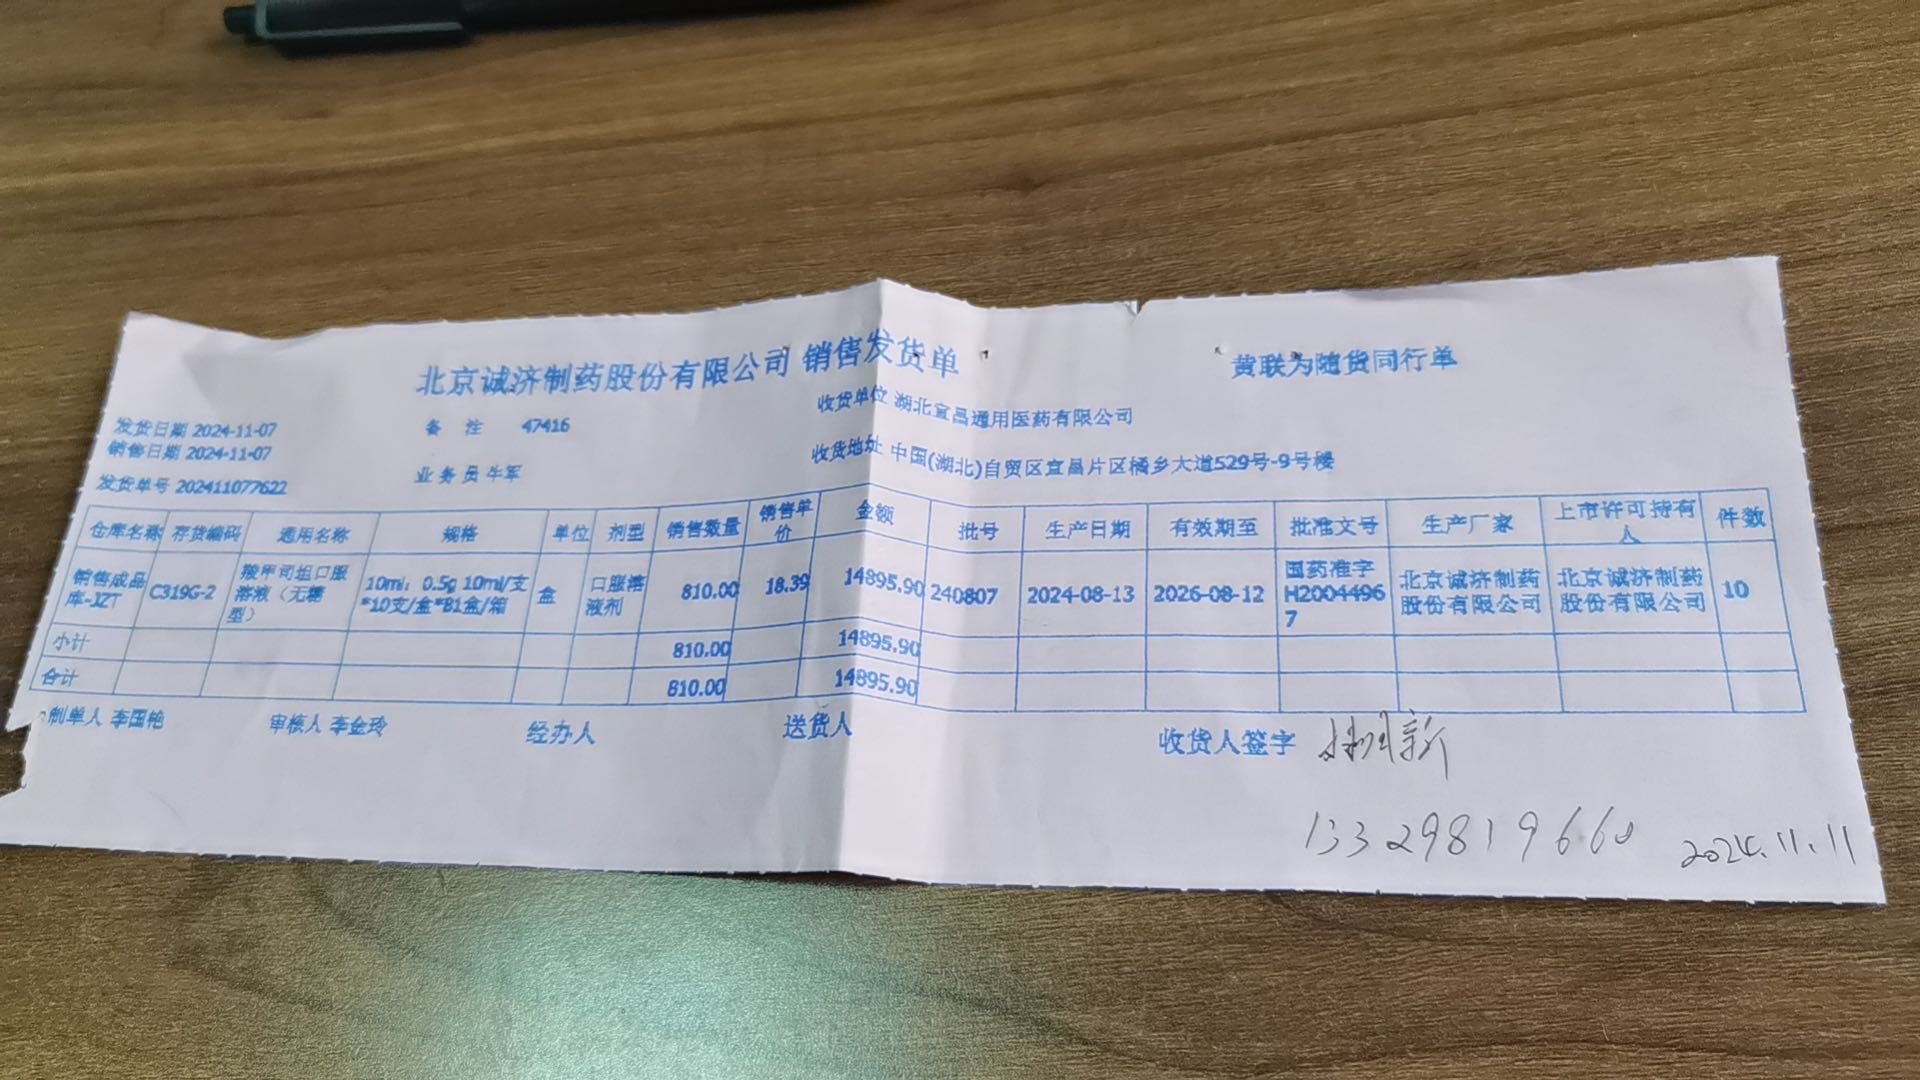 北京诚济制药股份有限公司 销售发货单
黄联为随货同行单
发货日期 2024-11-07 备 注 47416 收货单位 湖北宜昌通用医药有限公司
销售日期 2024-11-07
发货单号 202411077622 业务员 牛军 收货地址 中国(湖北)自贸区宜昌片区橘乡大道529号-9号楼
仓库名称 存货编码 通用名称 规格 单位 剂型 销售数量 销售单价 金额 批号 生产日期 有效期至 批准文号 生产厂家 上市许可持有人 件数
销售成品库-JZT C319G-2 羧甲司坦口服溶液（无糖型） 10ml：0.5g 10ml/支*10支/盒*81盒/箱 盒 口服溶液剂 810.00 18.39 14895.90 240807 2024-08-13 2026-08-12 国药准字H20044967 北京诚济制药股份有限公司 北京诚济制药股份有限公司 10
小计 810.00 14895.90
合计 810.00 14895.90
制单人 李国艳 审核人 李金玲 经办人 送货人 收货人签字
13329819660 2024.11.11